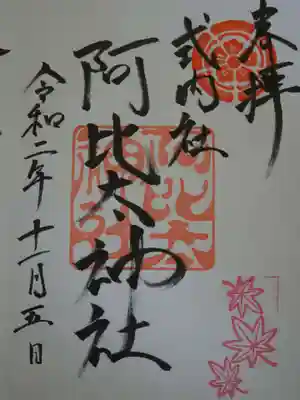 奉拝
式内社
阿比太神社
令和二年十一月五日
阿比太
神社